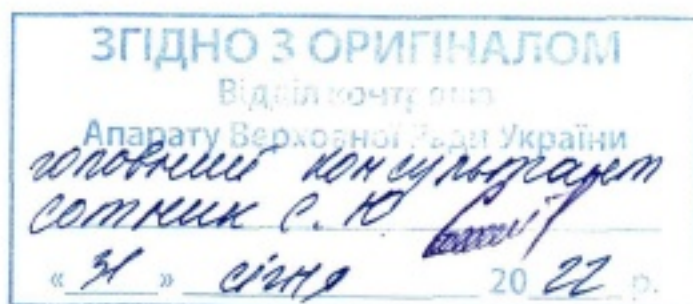 ЗГІДНО З ОРИГІНАЛОМ
Відділ контролю
Апарату Верховної Ради України
головний консультант
сотник С. Ю
« 31 » січня 20 22 р.